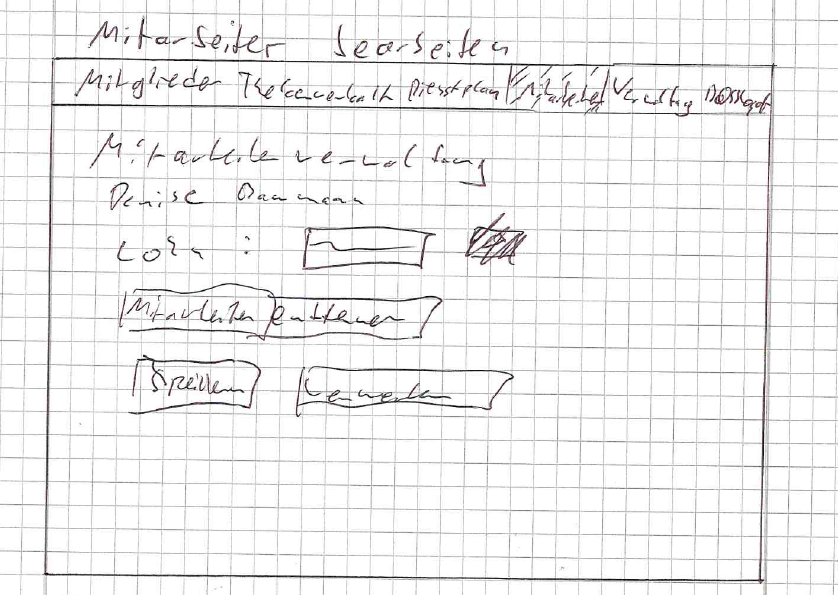 Mitarbeiter bearbeiten
Mitglieder Thekenverkauf Dienstplan Mitarbeiter Verwaltung
Mitarbeiterverwaltung
Denise Baumann
Lohn :
Mitarbeiter entfernen
Speichern Verwerfen